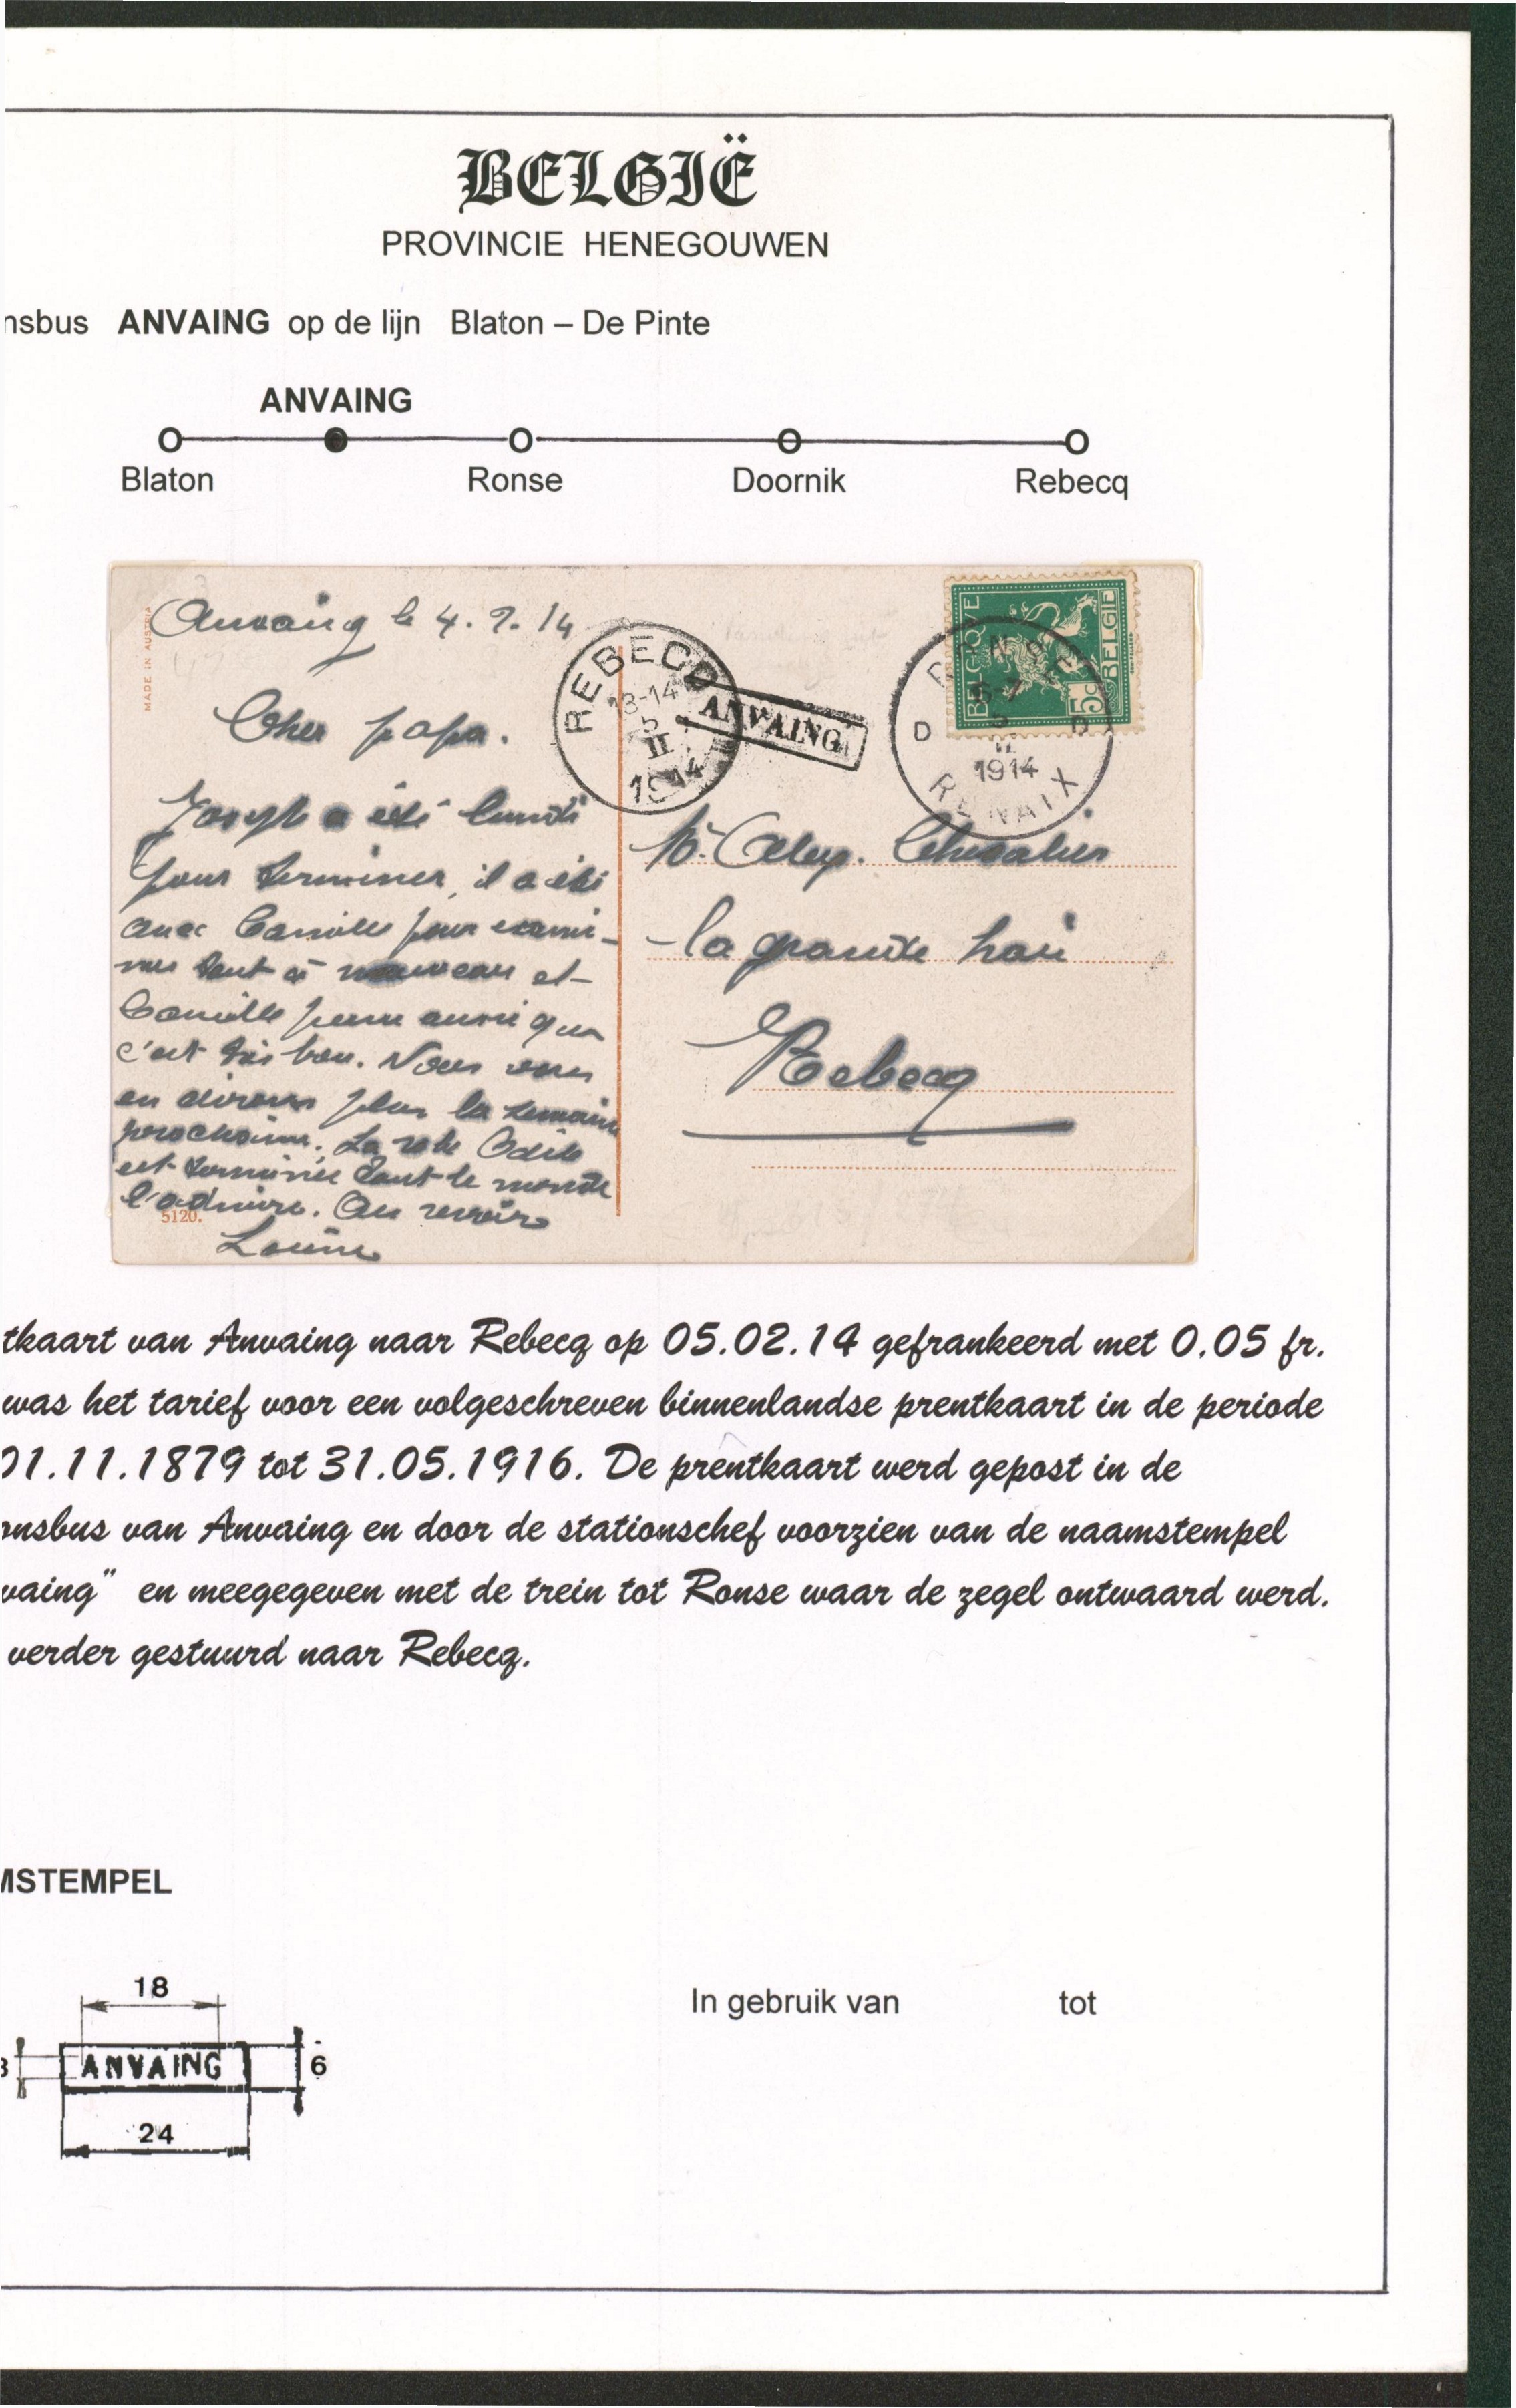 BELGIË
PROVINCIE HENEGOUWEN
nsbus ANVAING op de lijn Blaton – De Pinte
ANVAING
Blaton Ronse Doornik Rebecq
MADE IN AUSTRIA
Anvaing le 4.2.14
Cher papa.
Joseph a été lundi
pour terminer, il a été
avec Camille pour exami-
ner tout à nouveau et
Camille pense aussi que
c'est très bon. Nous vous
en dirons plus la semaine
prochaine. La robe Odile
est terminée tout le monde
l'admire. Au revoir
5120.
REBECQ
13-14
5
II
1914
ANVAING
BELGIQUE
BELGIË
5c
D D
1914
RENAIX
la grande haie
Rebecq
tkaart van Anvaing naar Rebecq op 05.02.14 gefrankeerd met 0.05 fr.
was het tarief voor een volgeschreven binnenlandse prentkaart in de periode
01.11.1879 tot 31.05.1916. De prentkaart werd gepost in de
onsbus van Anvaing en door de stationschef voorzien van de naamstempel
vaing" en meegegeven met de trein tot Ronse waar de zegel ontwaard werd.
verder gestuurd naar Rebecq.
MSTEMPEL
18
ANVAING
6
24
3
In gebruik van tot